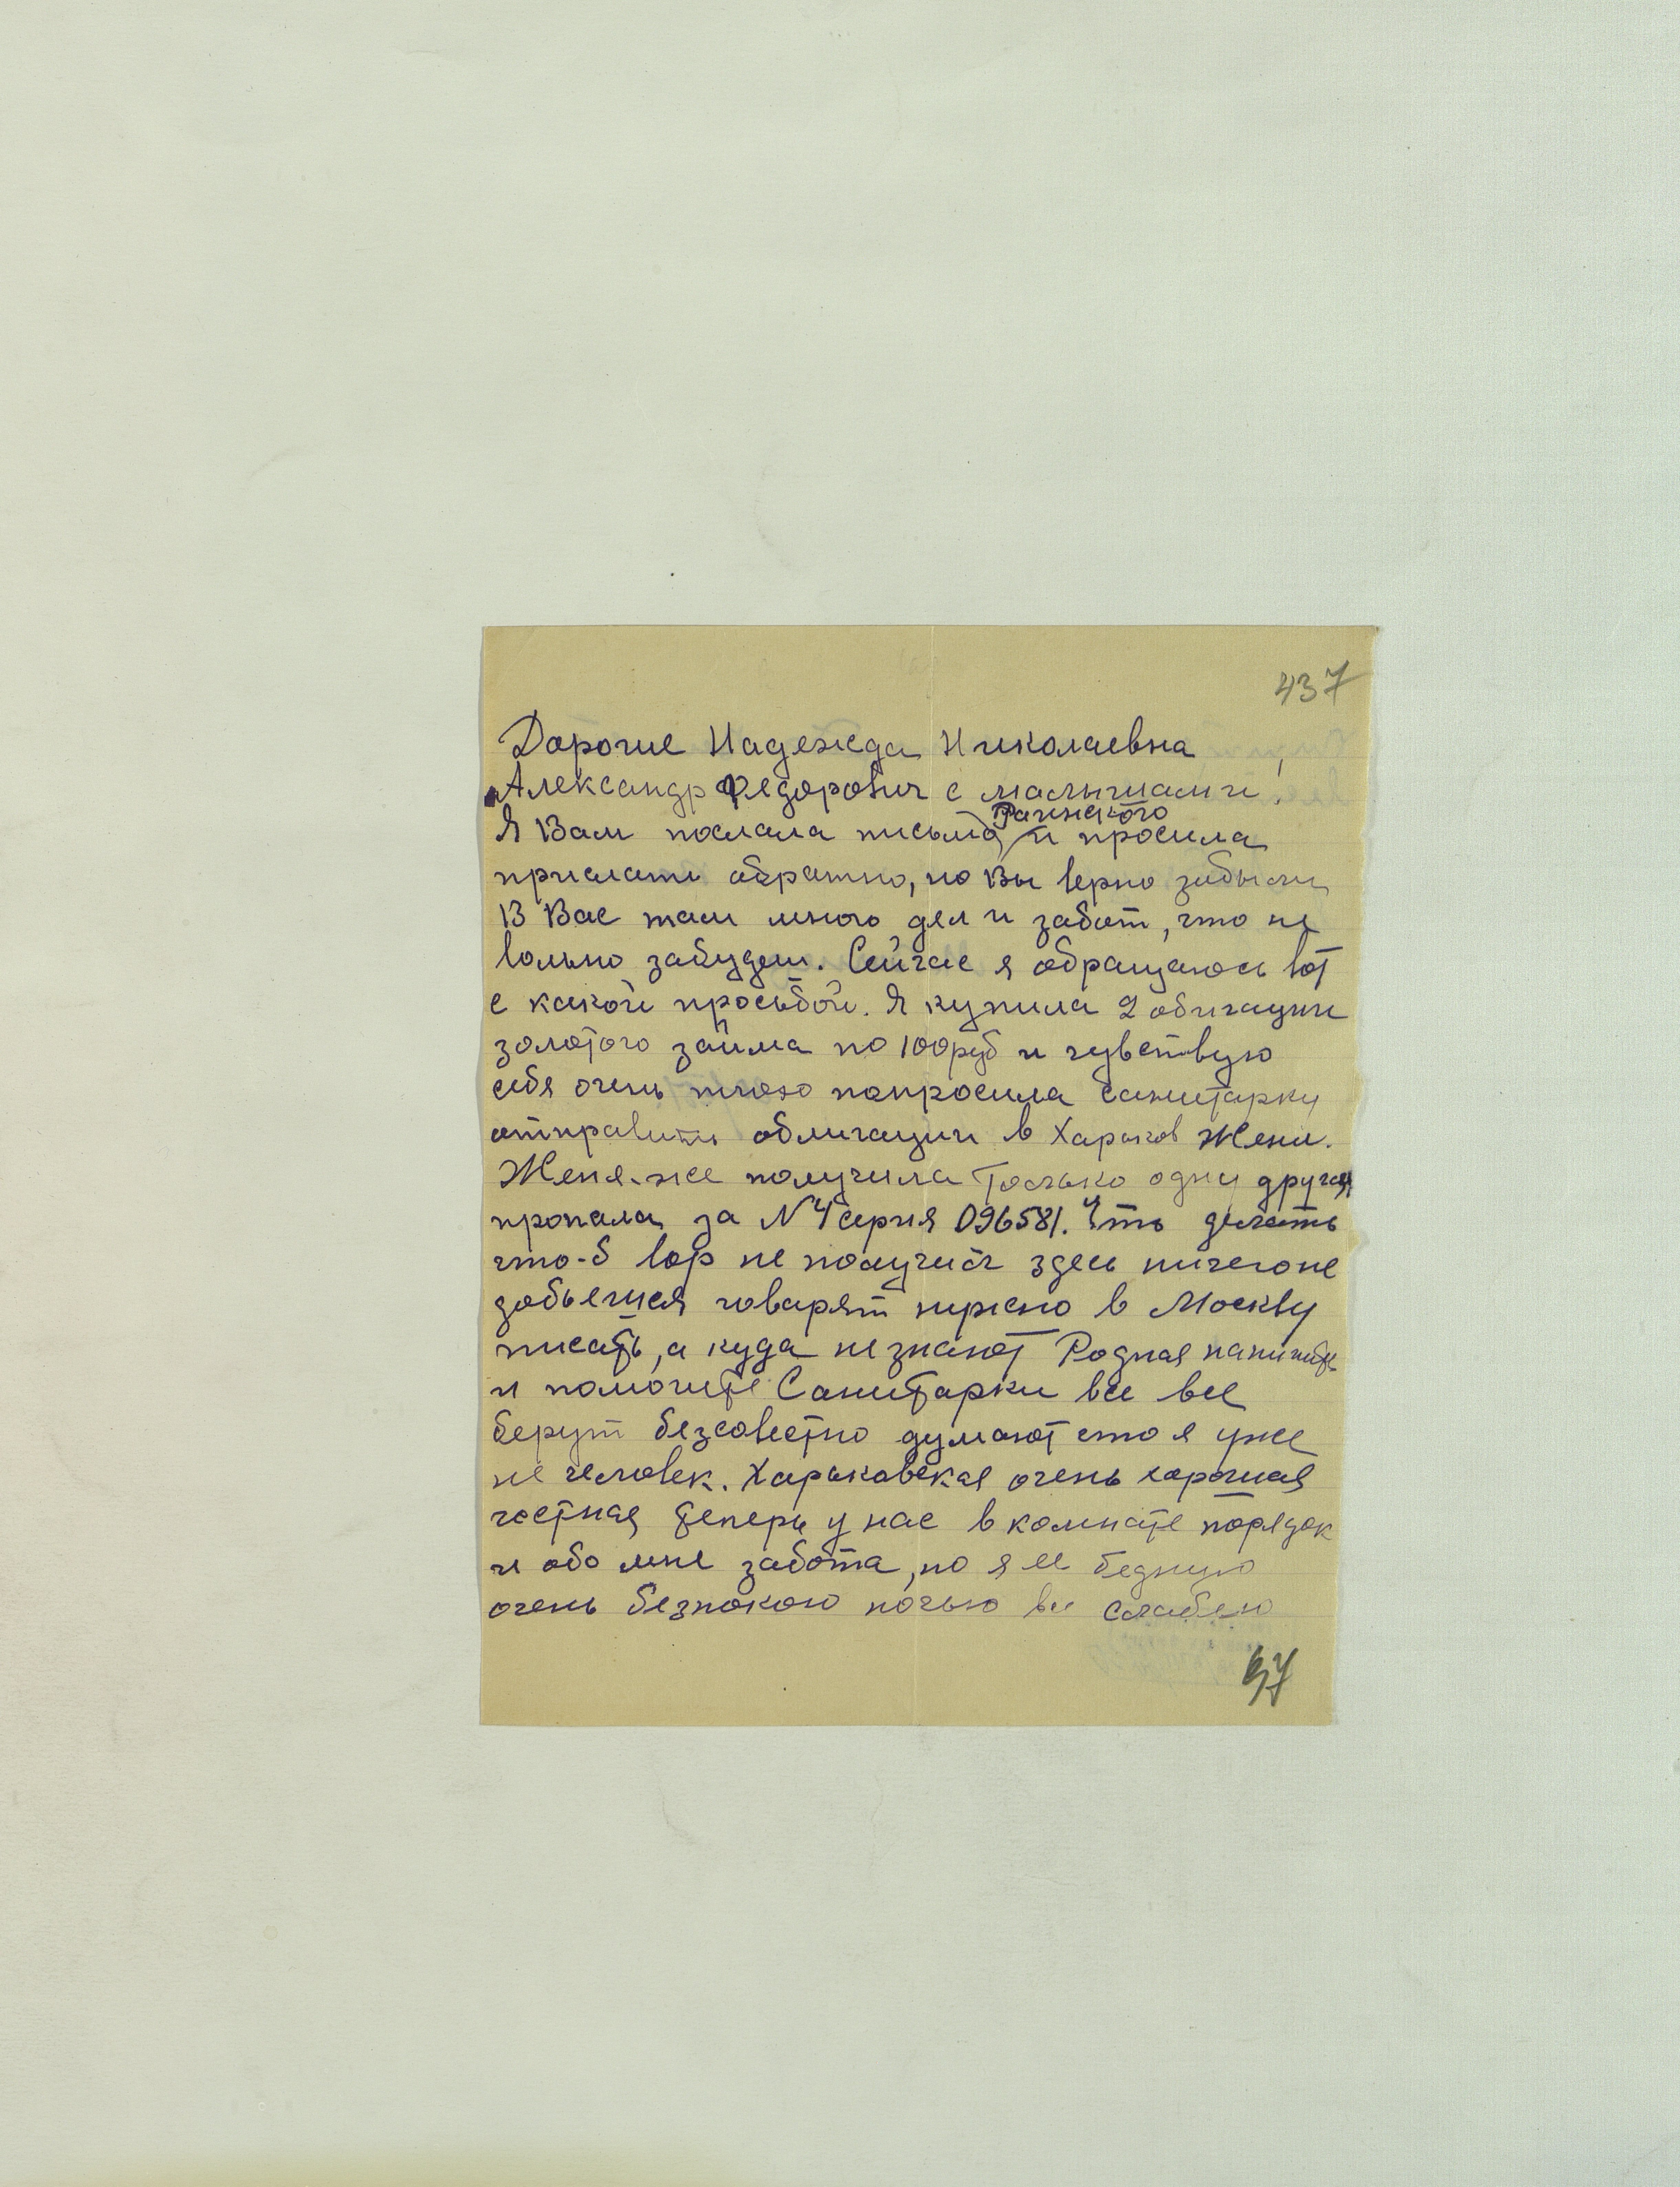 437
Дорогие Надежда Николаевна
Александр Федорович с малышами!
Я Вам послала письма Рачинского и просила
прислать обратно, но Вы верно забыли
В Вас там много дел и забот, что не
вольно забудеш. Сейчас я обращаюсь вот
с какой просьбой. Я купила 2 обигации
золотого займа по 100 руб и чувствую
себя очень плохо попросила санитарку
отправить облигации в Харьков Жени.
Женя-же получила только одну другая
пропала за N 4 серия 096581. Что делать
что-б вор не получил здесь ничего не
добьешся говарят нужно в Москву
писать, а куда не знают Родная напишите
и помогите Санитарки все все
берут безсовестно думают что я уже
не человек. Харьковская очень хорошая
честная теперь у нас в комнате порядок
и обо мне забота, но я ее бедную
очень безпокою ночью все слабею